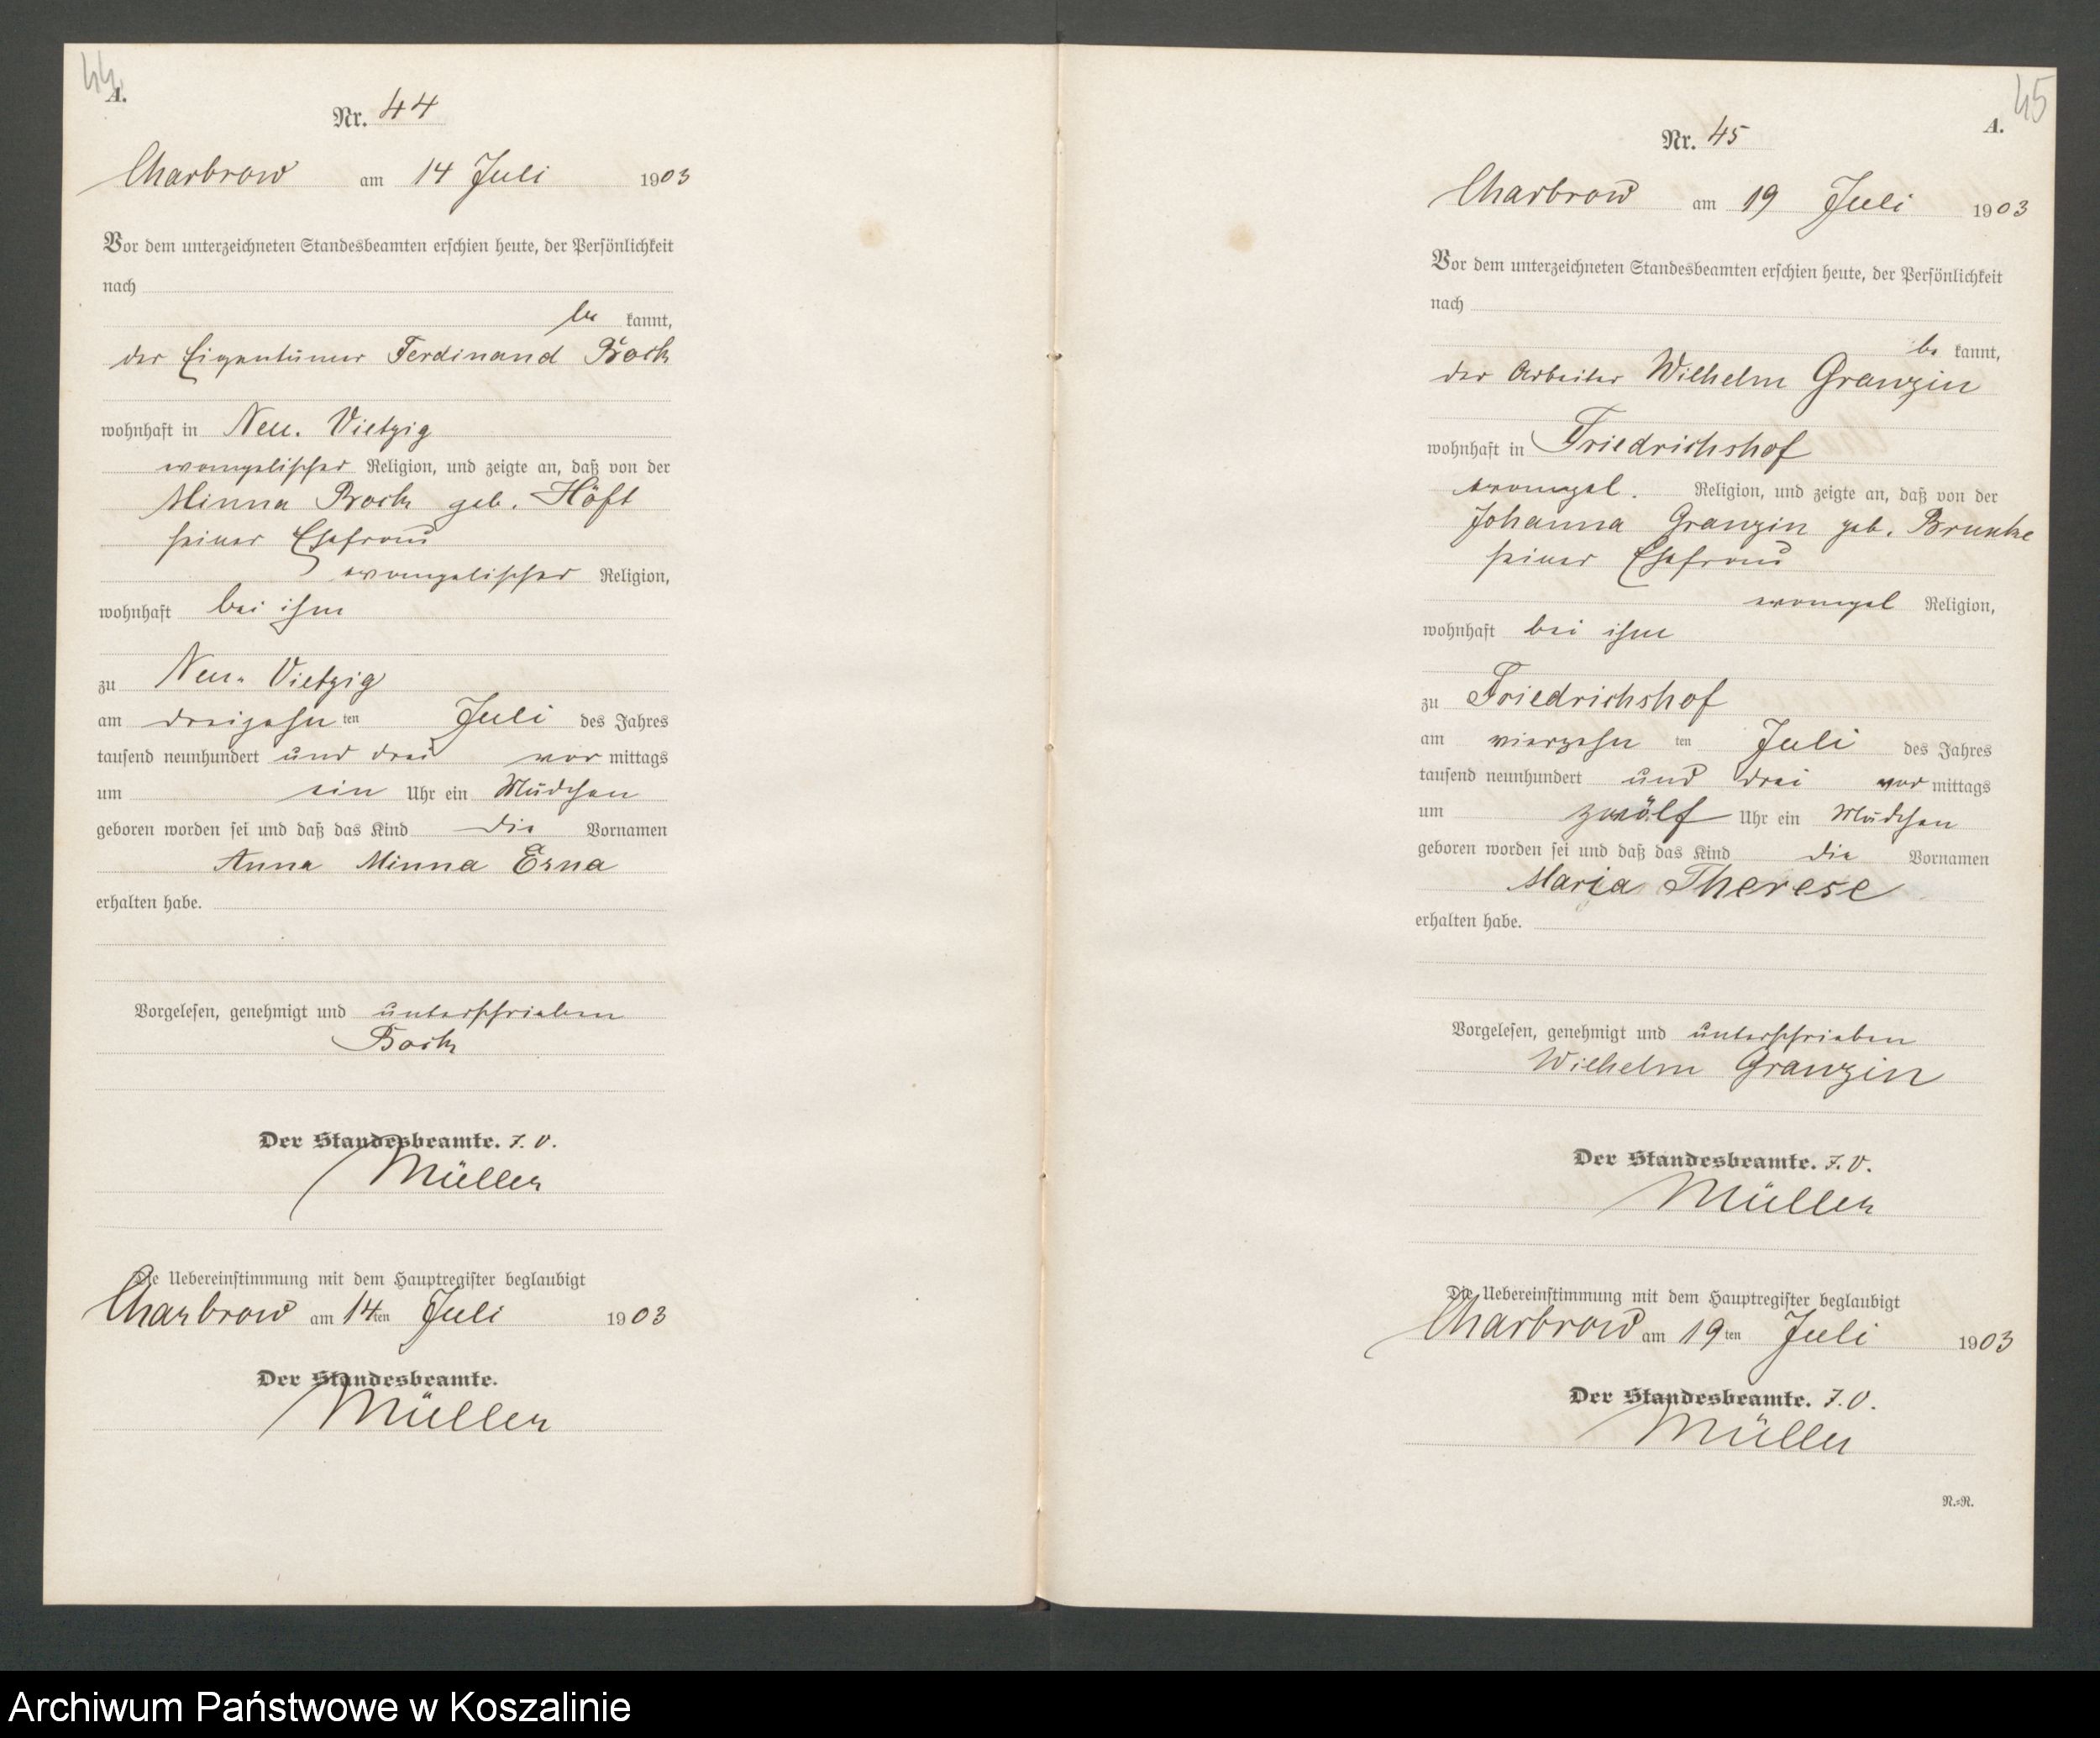 44
A.
Nr. 44
Charbrow am 14 Juli 1903
Vor dem unterzeichneten Standesbeamten erschien heute, der Persönlichkeit
nach
be kannt,
der Eigentümer Ferdinand Bock
wohnhaft in Neu. Vietzig
evangelischer Religion, und zeigte an, daß von der
Minna Bock geb. Höft
seiner Ehefrau
evangelischer Religion,
wohnhaft bei ihm
zu Neu-Vietzig
am dreizehn ten Juli des Jahres
tausend neunhundert und drei vor mittags
um ein Uhr ein Mädchen
geboren worden sei und daß das Kind die Vornamen
Anna Minna Erna
erhalten habe.
Vorgelesen, genehmigt und unterschrieben
Bock
Der Standesbeamte. J. V.
Müller
Die Uebereinstimmung mit dem Hauptregister beglaubigt
Charbrow am 14ten Juli 1903
Der Standesbeamte.
Müller
45
A.
Nr. 45
Charbrow am 19 Juli 1903
Vor dem unterzeichneten Standesbeamten erschien heute, der Persönlichkeit
nach
be kannt,
der Arbeiter Wilhelm Granzin
wohnhaft in Friedrichshof
evangel. Religion, und zeigte an, daß von der
Johanna Granzin geb. Brunke
seiner Ehefrau
evangel Religion,
wohnhaft bei ihm
zu Friedrichshof
am vierzehn ten Juli des Jahres
tausend neunhundert und drei vor mittags
um zwölf Uhr ein Mädchen
geboren worden sei und daß das Kind die Vornamen
Maria Therese
erhalten habe.
Vorgelesen, genehmigt und unterschrieben
Wilhelm Granzin
Der Standesbeamte. J. V.
Müller
Die Uebereinstimmung mit dem Hauptregister beglaubigt
Charbrow am 19ten Juli 1903
Der Standesbeamte. J. V.
Müller
N.=R.
Archiwum Państwowe w Koszalinie